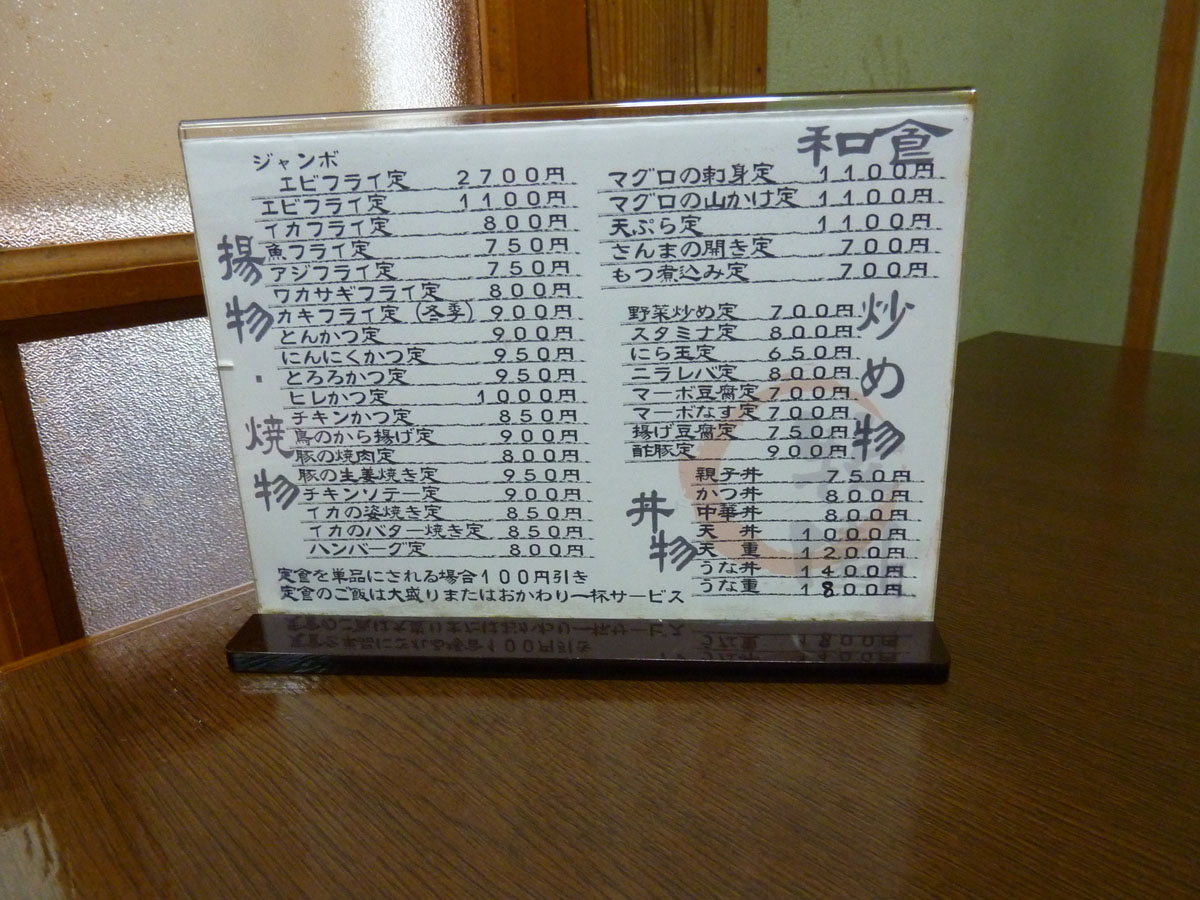 ジャンボ
エビフライ定 2700円
エビフライ定 1100円
イカフライ定 800円
魚フライ定 750円
アジフライ定 750円
ワカサギフライ定 800円
カキフライ定(冬季) 900円
とんかつ定 900円
にんにくかつ定 950円
とろろかつ定 950円
ヒレかつ定 1000円
チキンかつ定 850円
鳥のから揚げ定 900円
豚の焼肉定 800円
豚の生姜焼き定 950円
チキンソテー定 900円
イカの姿焼き定 850円
イカのバター焼き定 850円
ハンバーグ定 800円
揚物・焼物
定食を単品にされる場合100円引き
定食のご飯は大盛りまたはおかわり一杯サービス
和食
マグロの刺身定 1100円
マグロの山かけ定 1100円
天ぷら定 1100円
さんまの開き定 700円
もつ煮込み定 700円
炒め物
野菜炒め定 700円
スタミナ定 800円
にら玉定 650円
ニラレバ定 800円
マーボ豆腐定 700円
マーボなす定 700円
揚げ豆腐定 750円
酢豚定 900円
丼物
親子丼 750円
かつ丼 800円
中華丼 800円
天丼 1000円
天重 1200円
うな丼 1400円
うな重 1800円